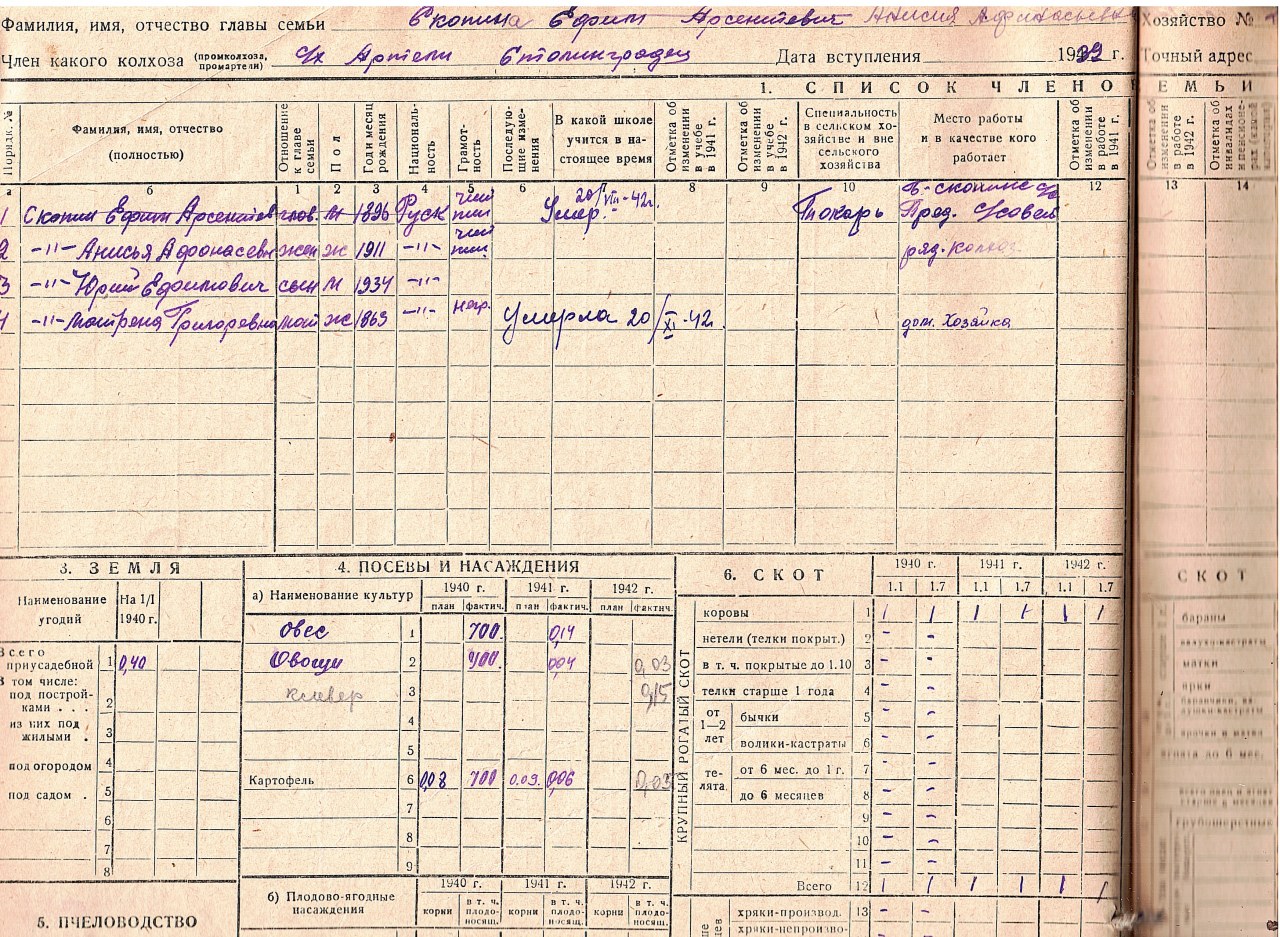 Фамилия, имя, отчество главы семьи Скопина Ефим Арсентевич Анисия Афанасьевна Хозяйство №
Член какого колхоза (промколхоза, промартели) с/х Артели Столинградец Дата вступления 1939 г. Точный адрес
1. СПИСОК ЧЛЕНО ЕМЬИ
Порядк. №
Фамилия, имя, отчество (полностью)
Отношение к главе семьи
Пол
Год и месяц рождения
Националь-ность
Грамот-ность
Последую-щие изме-нения
В какой школе учится в на-стоящее время
Отметка об изменении в учебе в 1941 г.
Отметка об изменении в учебе в 1942 г.
Специальность в сельском хо-зяйстве и вне сельского хозяйства
Место работы и в качестве кого работает
Отметка об изменении в работе в 1941 г.
Отметка об изменении в работе в 1942 г.
Отметка об инвалидах
а б 1 2 3 4 5 6 7 8 9 10 12 13 14
1 Скопин Ефим Арсентев глов. М 1896 Руск Умер. 20/VIII-42г. Токарь Пред.
2 -"- Анисья Афонасевн жен ж 1911 -"- ряд. колхоз
3 -"- Юрий Ефимович сын м 1934 -"-
4 -"- Матрена Григоревна мат ж 1863 -"- негр. Умерла 20/XI-42 дом. Хозайка
3. ЗЕМЛЯ
Наименование угодий
На 1/I 1940 г.
Всего приусадебной 1 0,40
В том числе:
под построй-ками . . . 2
из них под жилыми . 3
под огородом 4
под садом . 5
6
7
8
5. ПЧЕЛОВОДСТВО
4. ПОСЕВЫ И НАСАЖДЕНИЯ
а) Наименование культур 1940 г. 1941 г. 1942 г.
план фактич. план фактич. план фактич.
Овес 1 700 0,14
Овощи 2 400 0,04 0,03
клевер 3 0,15
4
5
Картофель 6 0,08 700 0.09. 0,06 0,03
7
8
9
б) Плодово-ягодные насаждения 1940 г. 1941 г. 1942 г.
корни в т. ч. плодо-носящ. корни в т. ч. плодо-носящ. корни в т. ч. плодо-носящ.
6. СКОТ 1940 г. 1941 г. 1942 г.
1.1 1.7 1.1 1.7 1.1 1.7
КРУПНЫЙ РОГАТЫЙ СКОТ
коровы 1 1 1 1 1 1 1
нетели (телки покрыт.) 2 - -
в т. ч. покрытые до 1.10 3 - -
телки старше 1 года 4 - -
от 1—2 лет
бычки 5 - -
волики-кастраты 6 - -
те-лята
от 6 мес. до 1 г. 7 - -
до 6 месяцев 8 - -
9 - -
10 - -
11 - -
Всего 12 1 1 1 1 1 1
хряки-производ. 13 - -
хряки-непроизво-
СКОТ
бараны
матки
ярки